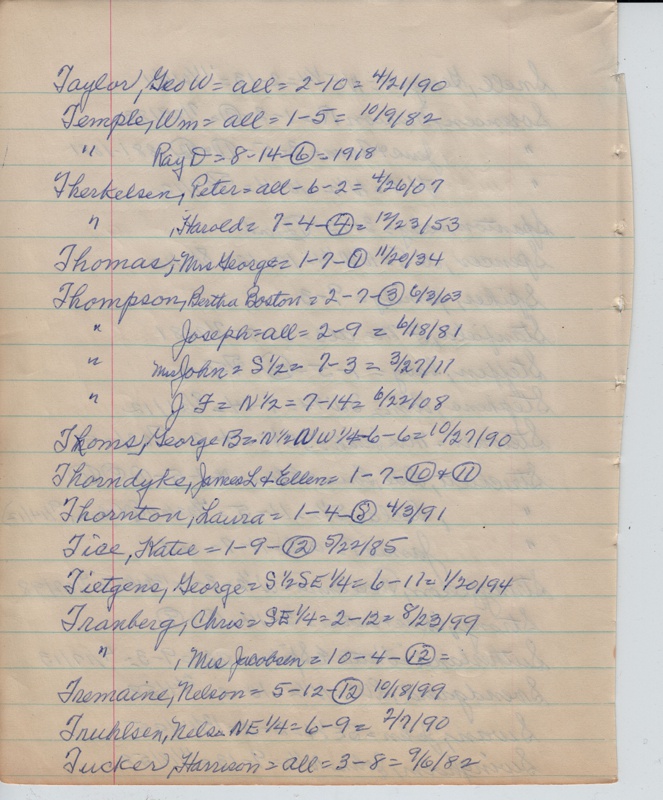 Taylor, Geo W = all = 2-10 = 4/21/90
Temple, Wm = all = 1-5 = 10/9/82
" Ray D = 8-14-6 = 1918
Therkelsen, Peter = all - 6-2 = 4/26/07
" , Harold = 7-4-4 = 12/23/53
Thomas, Mrs George = 1-7-1 11/20/34
Thompson, Bertha Boston = 2-7-3 6/3/63
" Joseph = all = 2-9 = 6/18/81
" Mrs John = S 1/2 = 7-3 = 3/27/11
" J F = N 1/2 = 7-14 = 6/22/08
Thoms, George B = N 1/2 NW 1/4 - 6-6 = 10/27/90
Thorndyke, James L + Ellen = 1-7-10 + 11
Thornton, Laura = 1-4-8 4/3/91
Tice, Katie = 1-9-12 5/22/85
Tietgens, George = S 1/2 SE 1/4 = 6-11 = 1/20/94
Tranberg, Chris = SE 1/4 = 2-12 = 8/23/99
" , Mrs Jacobsen = 10-4-12 =
Tremaine, Nelson = 5-12-12 10/18/99
Truhlsen, Nels = NE 1/4 = 6-9 = 2/7/90
Tucker, Harrison = all = 3-8 = 9/6/82